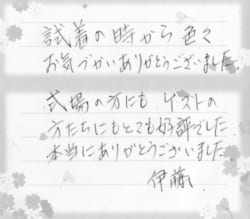 試着の時から色々
お気づかいありがとうございました
式場の方にも、ゲストの
方たちにもとても好評でした
本当にありがとうございました
伊藤